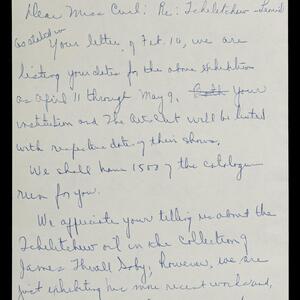 Dear Miss Curl: Re: Tchelitchew -
As stated in
Your letter of Feb. 10, we are
listing your dates for the above exhibition
as April 11 through May 9. Your
institution and The Art Inst will be listed
with respective dates of their shows.
We shall have 1500 of the catalogue
run for you.
We appreciate your telling us about the
Tchelitchew oil in the collection of
James Thrall Soby, however, we are
just exhibiting his more recent work and,